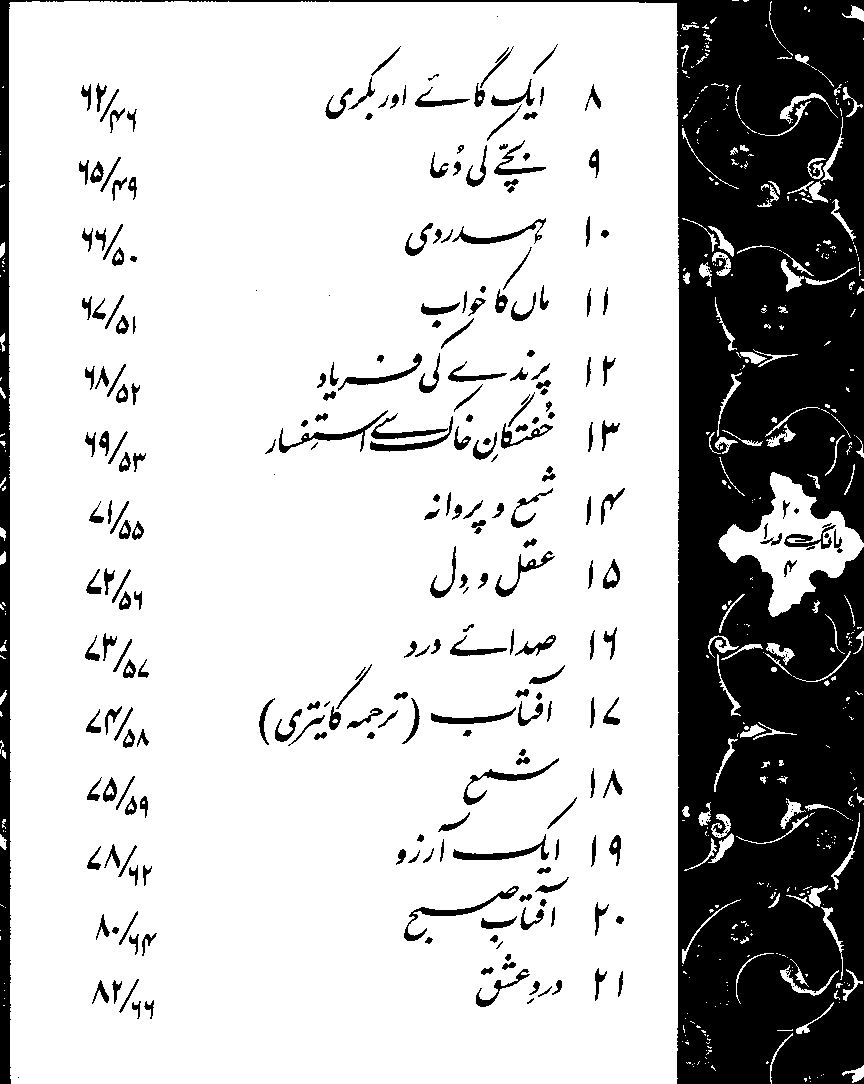 ۸ ایک گائے اور بکری ۶۲/۴۶
۹ بچّے کی دُعا ۶۵/۴۹
۱۰ ہمدردی ۶۶/۵۰
۱۱ ماں کا خواب ۶۷/۵۱
۱۲ پرندے کی فریاد ۶۸/۵۲
۱۳ خُفتگانِ خاک سے استِفسار ۶۹/۵۳
۱۴ شمع و پروانہ ۷۱/۵۵
۱۵ عقل و دِل ۷۲/۵۶
۱۶ صدائے درد ۷۳/۵۷
۱۷ آفتاب (ترجمہ گایَتری) ۷۴/۵۸
۱۸ شمع ۷۵/۵۹
۱۹ ایک آرزو ۷۸/۶۲
۲۰ آفتابِ صبح ۸۰/۶۴
۲۱ دردِ عشق ۸۲/۶۶
۲۰
بانگِ درا
۴